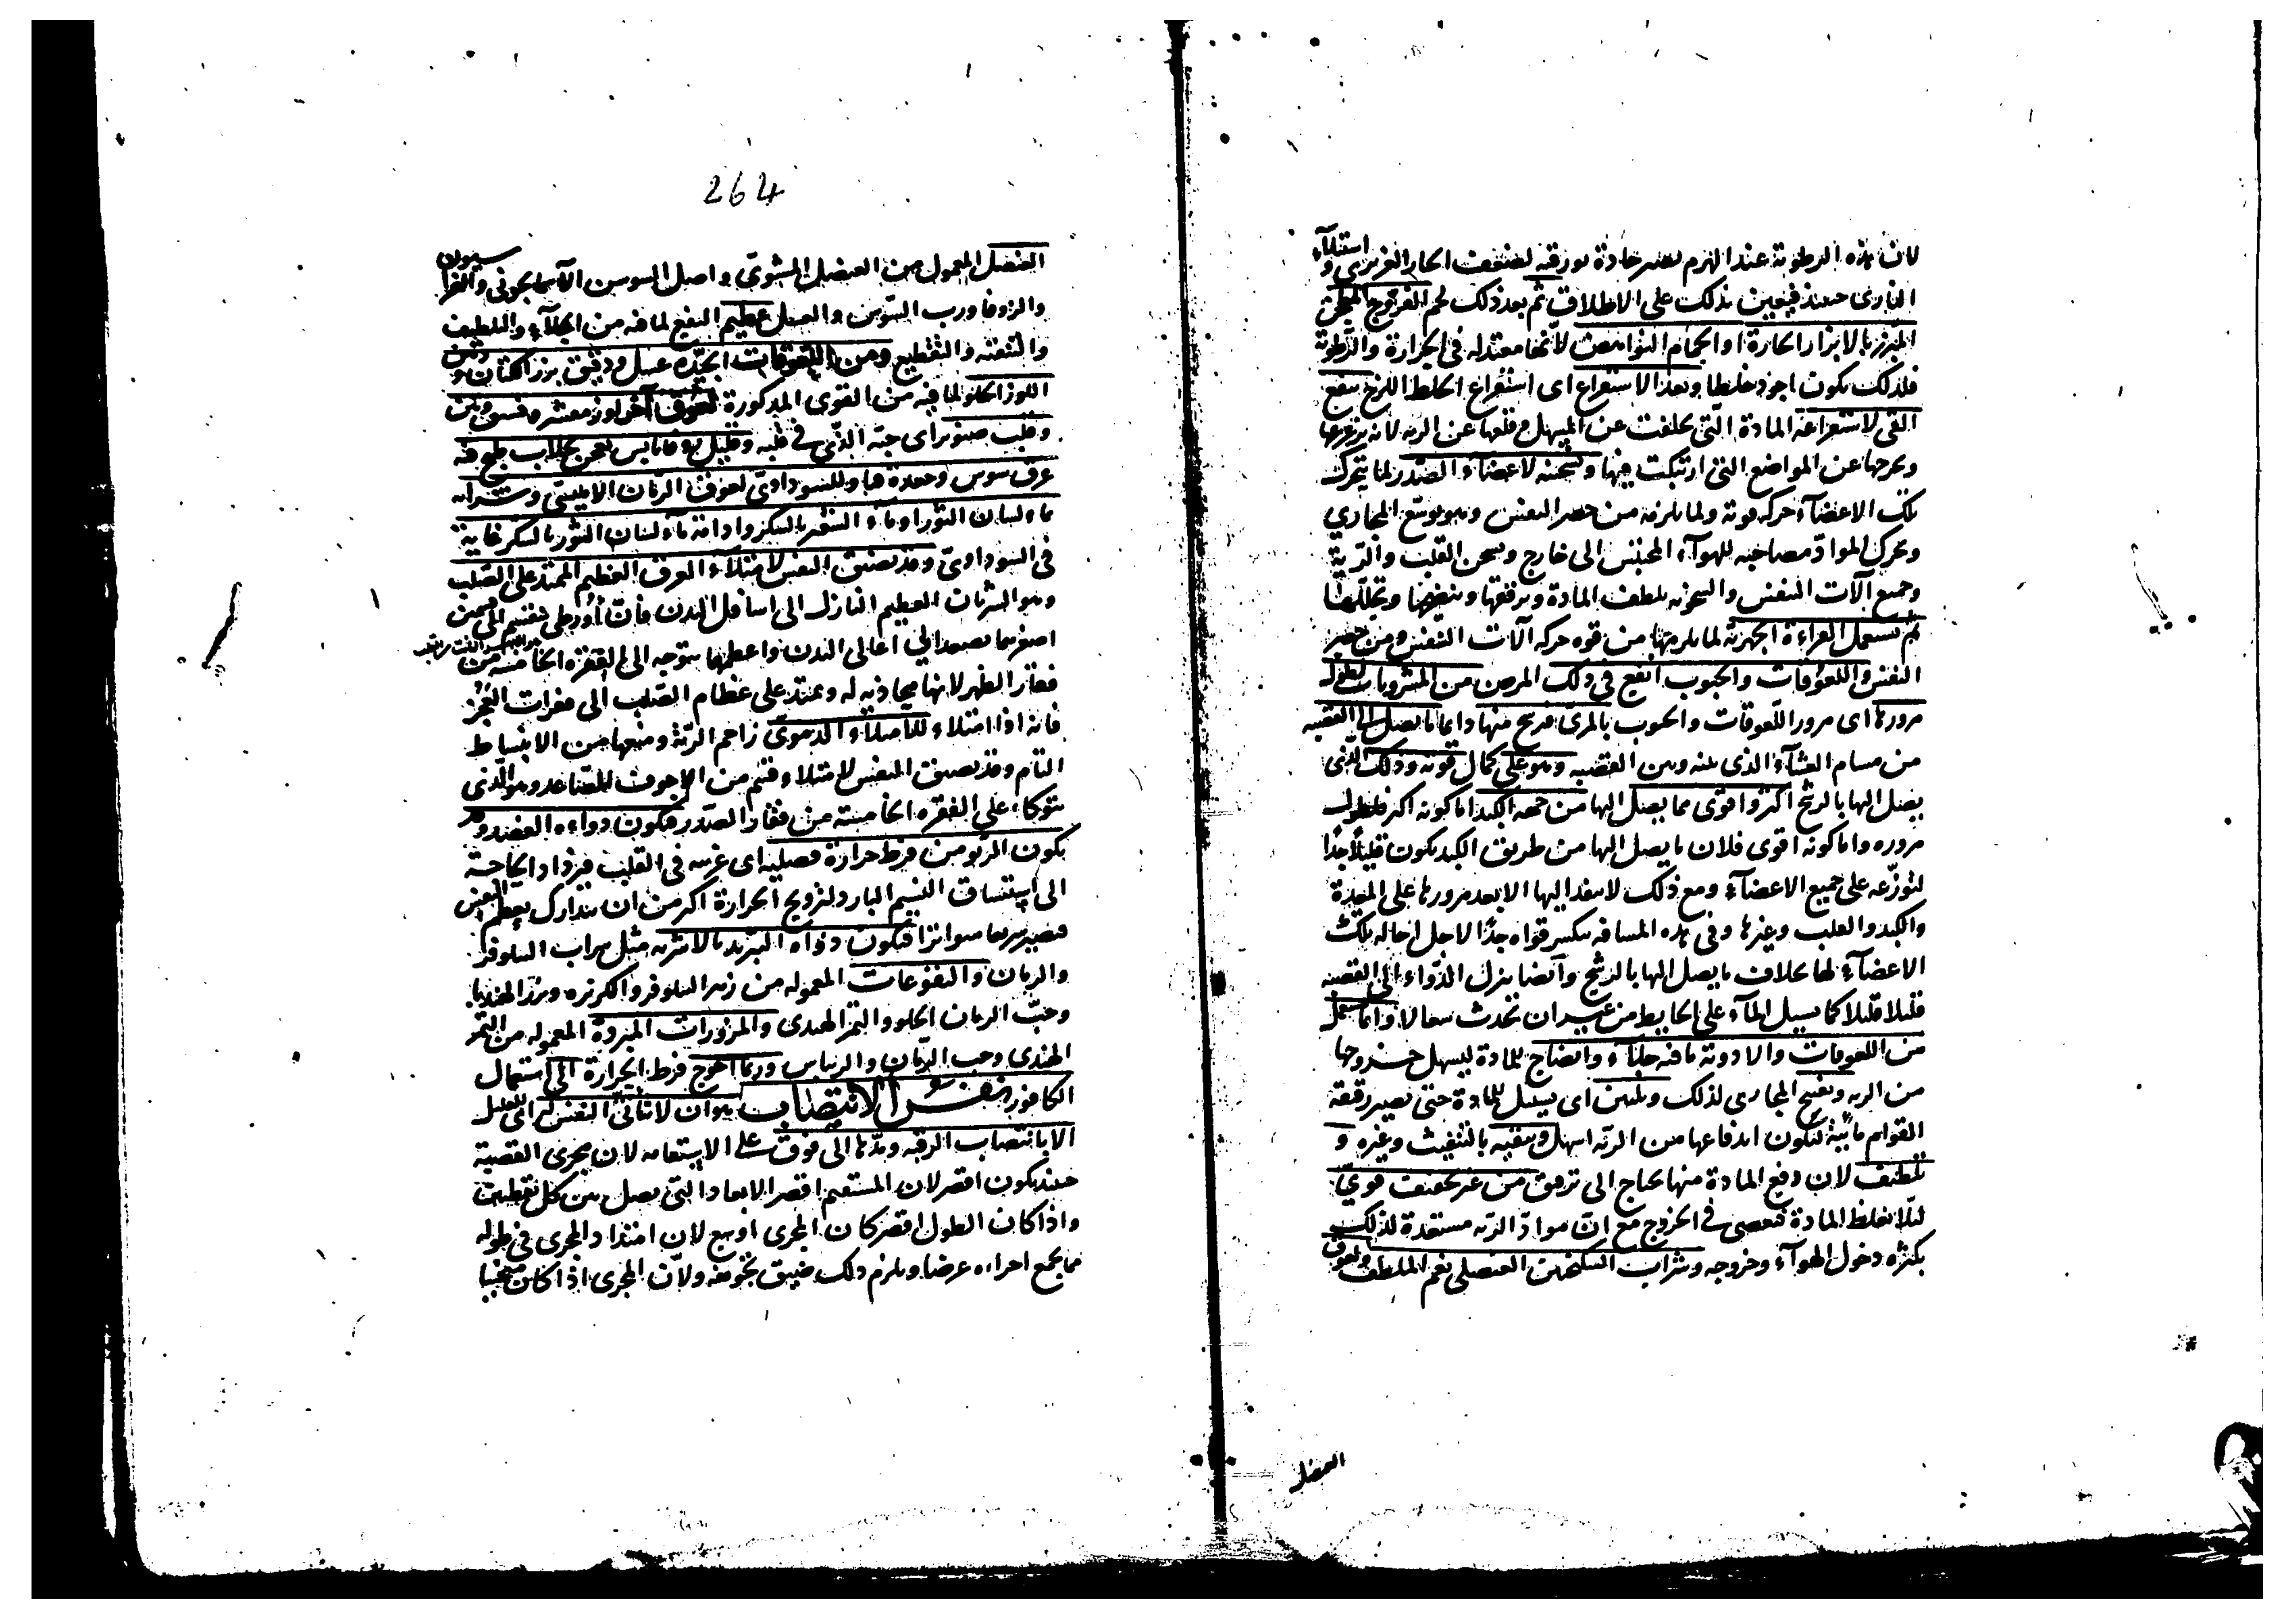 لان هذه الرطوبة عند الهرم تصير حادة بورقية لضعف الحار الغريزي و استيلاء
الناري حينئذ فيعين بذلك على الاطلاق ثم بعد ذلك لحم الفروج المطجن
المبزر بالابزار الحارة او الحمام النواهض لانها معتدلة في الحرارة والرطوبة
فلذلك يكون اجود خلطا وبعد الاستفراغ اى استفراغ الخلط اللزج ينفع
القى لاستفراغه المادة التى تخلفت عن المسهل وقلعها عن الريه لانه يزعزعها
ويخرجها عن المواضع التى ارتبكت فيها وتسخينه لاعضاء الصدر لما يتحرك
تلك الاعضاء حركة قوية ولما يلزمه من حصر النفس وهو يوسع المجاري
ويحرك المواد مصاحبه للهواء المحتبس الى خارج ويسخن القلب والرية
وجميع آلات التنفس والسخونه تلطف المادة وترققها وتنضجها وتحللها
ثم تستعمل القراءة الجهرية لما يلزمها من قوه حركة آلات التنفس ومن حصر
النفس واللعوقات والحبوب انفع في ذلك المرض من المشروبات لطول
مرورها اى مرور اللعوقات والحبوب بالمرئ فيرشح منها دايما ما يصل الى القصبه
من مسام الغشاء الذى بينه وبين القصبه وهو على كمال قوته وذلك الذى
يصل اليها بالرشح اكثر واقوى مما يصل اليها من جهه الكبد اما كونه اكثر فلطول
مروره واما كونه اقوى فلان ما يصل اليها من طريق الكبد يكون قليلا جدا
لتوزعه على جميع الاعضاء ومع ذلك لا ينفذ اليها الا بعد مرورها على المعدة
والكبد والقلب وغيرها وفى هذه المسافه تنكسر قواه جدا لاجل احاله تلك
الاعضاء لها بخلاف ما يصل اليها بالرشح وايضا ينزل الدواء الى القصبه
قليلا قليلا كما يسيل الماء على الحايط من غير ان تحدث سعالا وانما تستعمل
من اللعوقات والادوية ما فيه جلاء وانضاج للمادة ليسهل خروجها
من الريه وتفتح المجارى لذلك وتليين اى يسيل للمادة حتى تصير رقيقة
القوام مائية ليكون اندفاعها من الريه اسهل وتنقيه بالتنفيث وغيره و
تلطيف لان دفع المادة منها يحتاج الى ترقيق من غير تجفيف قوي
لئلا تغلظ المادة فتعصى في الخروج مع ان مواد الريه مستعدة لذلك
بكثره دخول الهواء وخروجه وشراب السكنجبين العنصلى نعم الملطف ولعوق
العنصل
264
العنصل المعمول من العنصل المشوى واصل السوسن الآسمانجونى والفراسيون
والزوفا ورب السوس والعسل عظيم النفع لما فيه من الجلاء والتلطيف
والتفتيه والتقطيع ومن اللعوقات الجيده عسل ودقيق بزر الكتان ودهن
اللوز الحلو لما فيه من القوى المذكورة لعوق آخر لوز مقشر وفستق وتين
وقلب صنوبر اى حبه الذى في قلبه وقليل زوفا يابس يعجن بجلاب طبخ فيه
عرق سوس وجعدة هاو للسوداوى لعوق الرمان الامليسى وشرابه
بماء لسان الثور او ماء الشعير بالسكر وادامة ماء لسان الثور بالسكر غاية
في السوداوى وقد يضيق النفس لامتلاء العرق العظيم الممتد على الصلب
وهو الشريان العظيم النازل الى اسافل البدن فان اورطى تنقسم الى قسمين
اصغرهما يصعد الى اعالى البدن واعظمهما يتوجه الى الفقرة الخامسة من
فقار الظهر لانها محاذيه له ويمتد على عظام الصلب الى فقرات العجز
فانه اذا امتلاء للامتلاء الدموى زاحم الرية ومنعها من الانبساط
التام وقد يضيق النفس لامتلاء قسم من الاجوف الصاعد وهو الذى
يتوكاء على الفقره الخامسة من فقار الصدر فيكون دواءه الفصد وقد
يكون الربو من فرط حرارة فصلية اى غريبه في القلب فيزداد الحاجة
الى استنشاق النسيم البارد لترويح الحرارة اكثر من ان يتدارك بعظم النفس
فيصير سريعا متواترا فيكون دواه التبريد بالاشربه مثل شراب النيلوفر
والرمان والنقوعات المعموله من زهر النيلوفر والكزبره وبزر الهندبا
وحب الرمان الحلو والتمر الهندى والمزورات المبردة المعموله من التمر
الهندى وحب الرمان والريباس وربما احوج فرط الحرارة الى استعمال
الكافور نفس الانتصاب هو ان لا يتأتى النفس اى للعليل
الا بانتصاب الرقبه ومدها الى فوق على الاستقامه لان مجرى القصبة
حينئذ يكون اقصر لان المستقيم اقصر الابعاد التى تصل بين كل نقطتين
واذا كان الطول اقصر كان المجرى اوسع لان امتداد المجرى في طوله
مما يجمع اجزاءه عرضا ويلزم ذلك ضيق تجويفه ولان المجرى اذا كان منحنيا